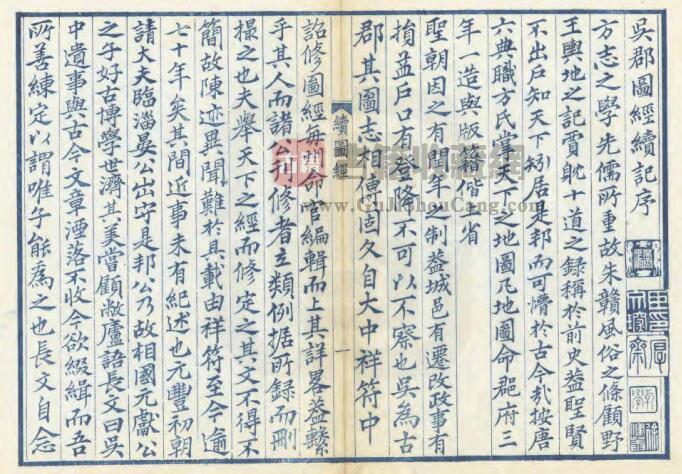 吳郡圖經續記序
方志之學先儒所重故朱贛風俗之條顧野
王輿地之記賈耽十道之錄稱於前史蓋聖賢
不出戶知天下矧居是邦而可懵於古今哉按唐
六典職方氏掌天下之地圖凡地圖命郡府三
年一造與版籍偕上省
聖朝因之有閏年之制蓋城邑有遷改政事有
損益戶口有登降不可以不察也吳爲古
郡其圖志相傳固久自大中祥符中
續圖經
一
詔修圖經每州命官編輯而上其詳畧蓋繫
乎其人而諸公刊修者立類例據所錄而刪
撮之也夫舉天下之經而修定之其文不得不
簡故陳迹異聞難於具載由祥符至今逾
七十年矣其間近事未有紀述也元豐初朝
請大夫臨淄晏公出守是邦公乃故相國元獻公
之子好古博學世濟其美嘗顧敝廬語長文曰吳
中遺事與古今文章湮落不收今欲綴緝而吾
所善練定以謂唯子能爲之也長文自念
www.GuJiShouCang.com